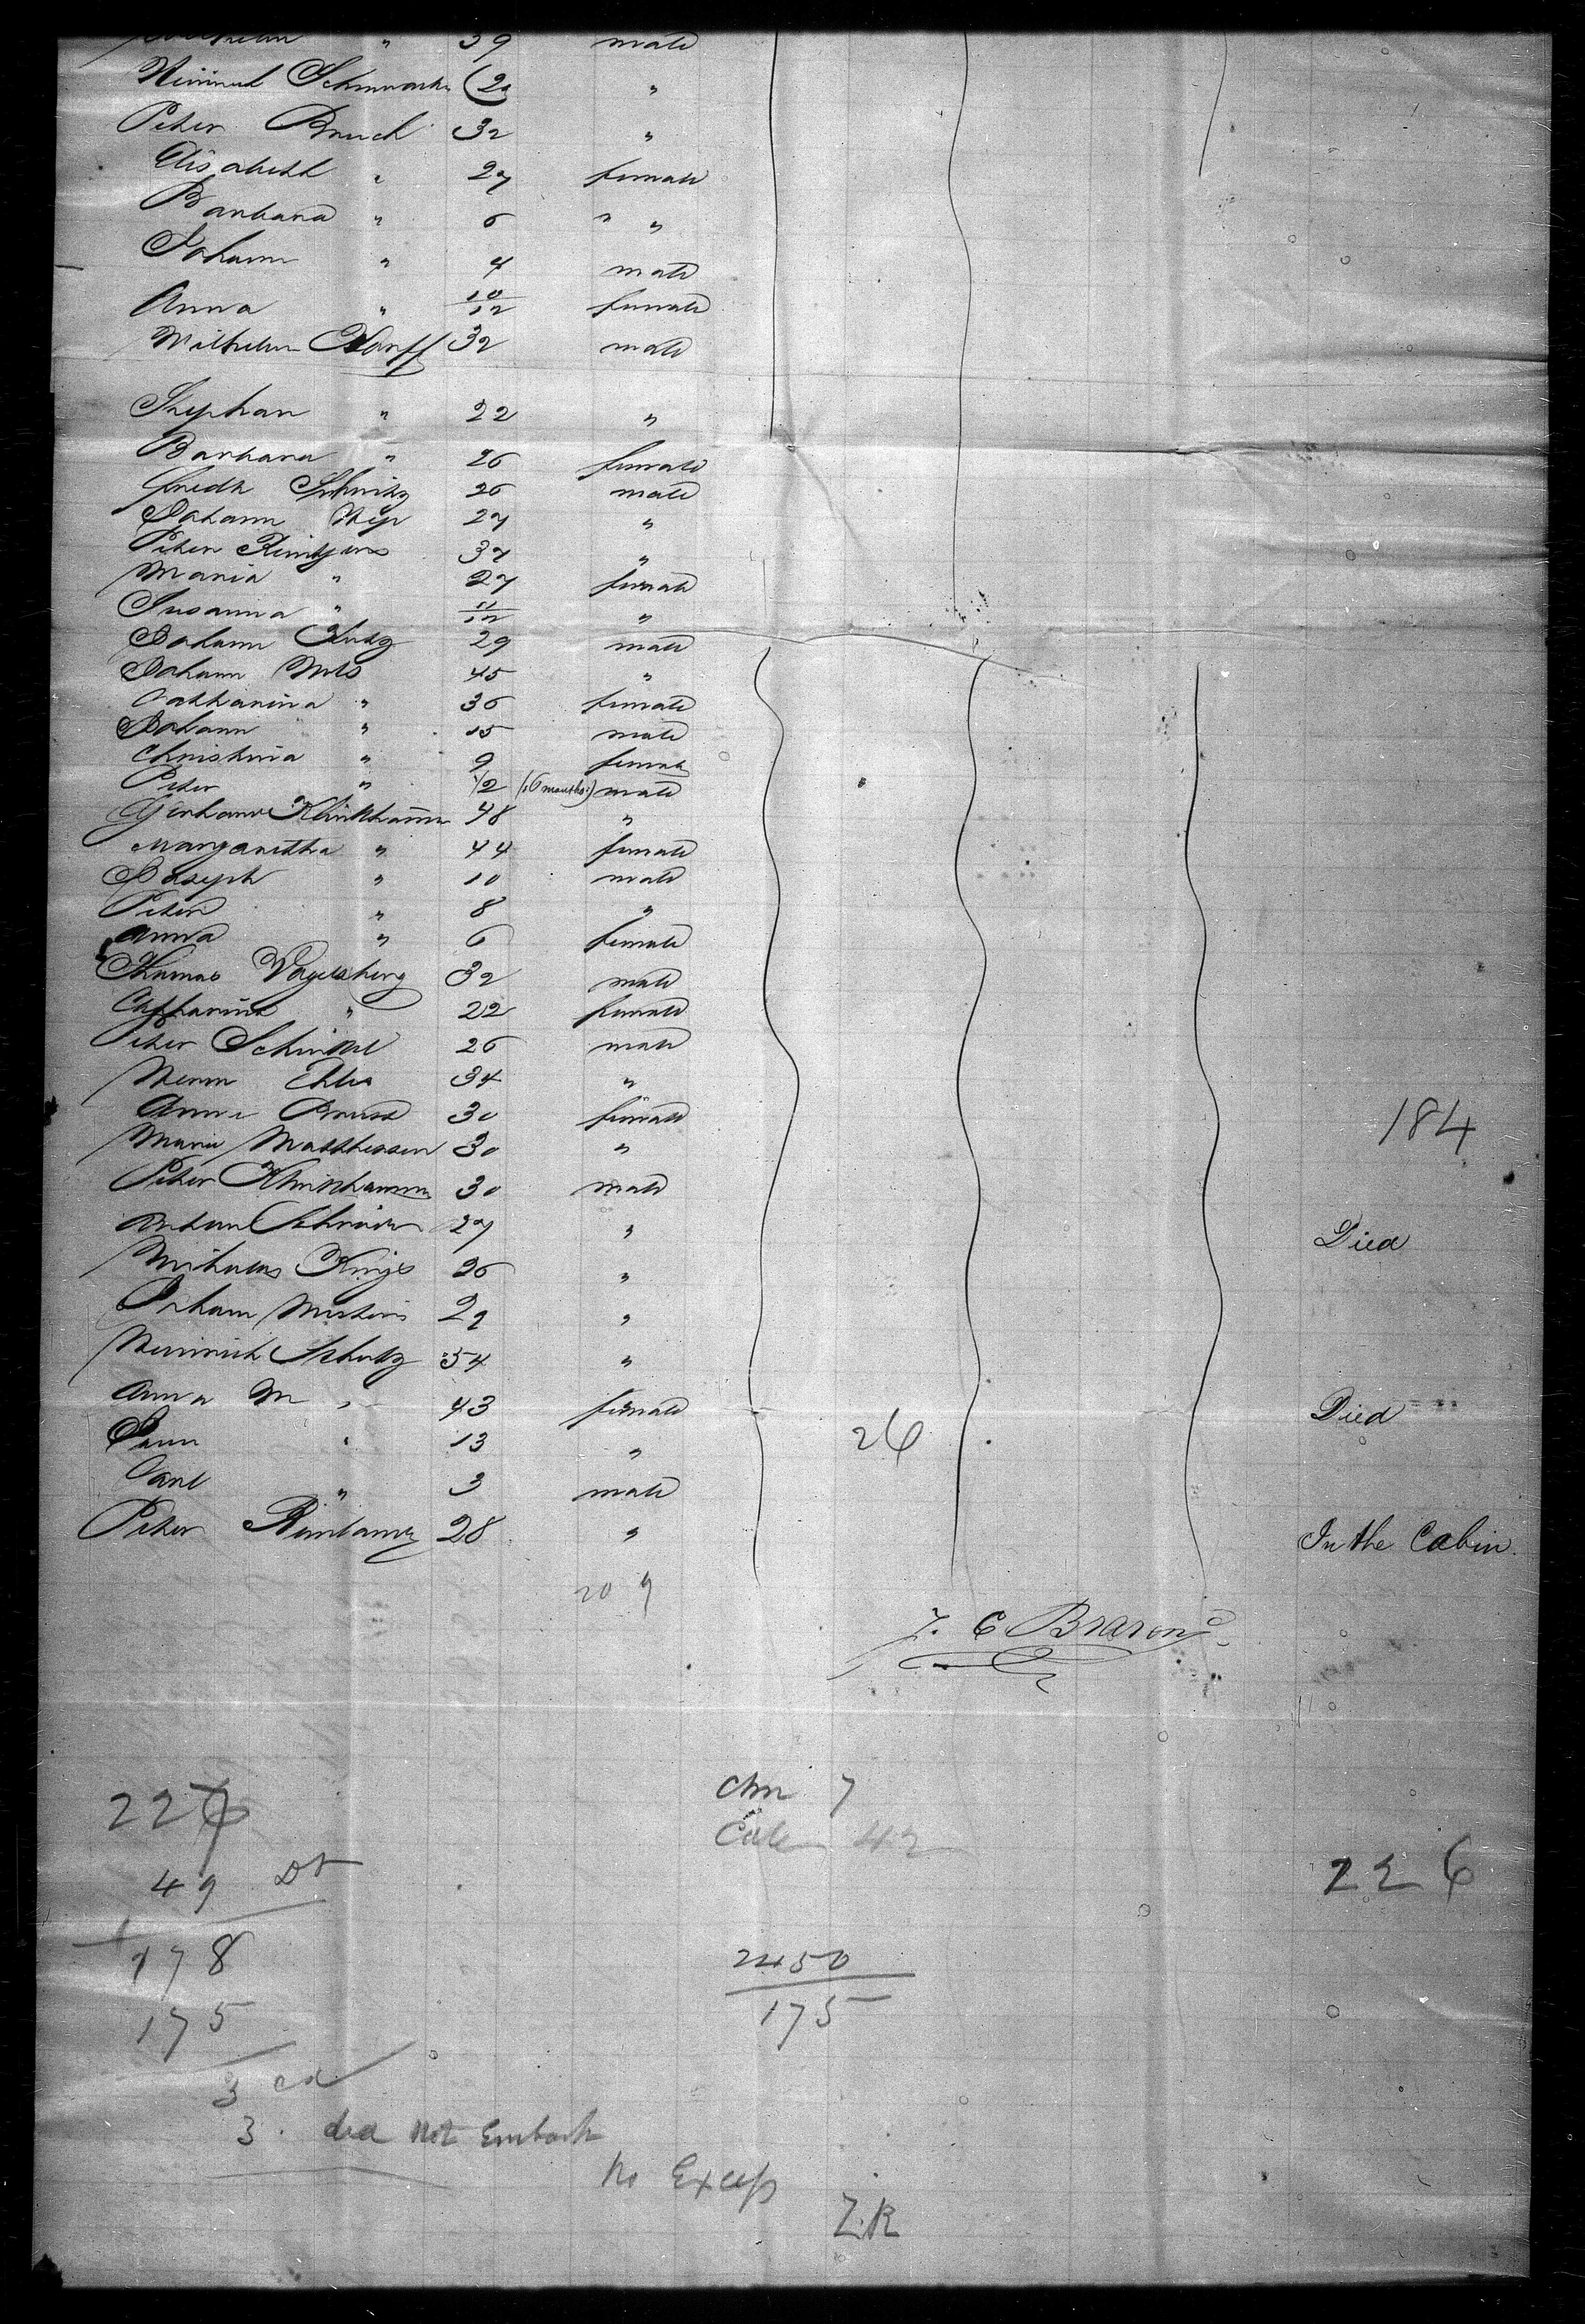 Wilhelm " 39 male
Heinrich (29 "
Peter Bruch 32 "
Elisabeth " 27 female
Barbara " 6 " "
Johann " 4 male
Anna " 10/12 female
Wilhelm 32 male
Stephan " 22 "
Barbara " 26 female
Friedk 26 male
Johann 27 "
Peter Rintgens 37 "
Maria " 27 female
Susanna " 11/12 "
Johann 29 male
Johann Mes 45 "
Catharina " 36 female
Johann " 15 male
Christina " 9 female
Peter " 1/2 (:6 months:) male
Gerhard Klinkhammer 48 "
Margaretha " 44 female
Joseph " 10 male
Peter " 8 "
Anna " 6 female
Thomas Vogelsberg 32 male
Catharina " 22 female
Peter Schinkel 26 male
Herm Ehles 34 "
Anna 30 female
184
Maria Matthessen 30 "
Peter Klinkhammer 30 male
Anton 27 " Died
Nicholas Krings 26 "
Johann Mertens 29 "
Heinrich Schultz 54 "
Anna M " 43 female Died
" 13 " 26
Carl " 3 male
Peter 28 " In the Cabin
209
J. C Brarens
Chn 7
226
Cab 42
49 Dt
226
178
2450
175
175
3 cd
3. did not Embark
No Excess
Z.R